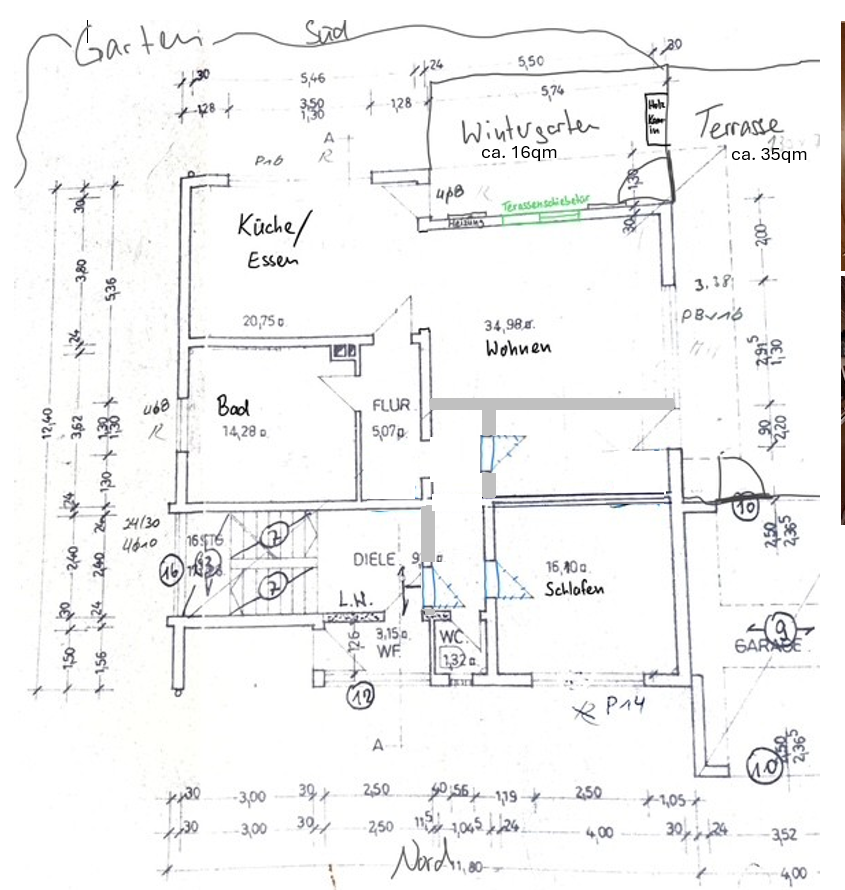 Garten
Süd
30
5,46
24
5,50
30
1,28
3,50
1,30
1,28
5,74
Holz
Kam-
in
Wintergarten
ca. 16qm
Terrasse
ca. 35qm
A
R
P16
1,30
Terassenschiebetür
Heizung
30
30
3,80
5,36
24
Küche/
Essen
20,75
34,98
Wohnen
2,00
3.38
2,91⁵
1,30
90
2,20
12,40
3,62
1,30
1,30
1,30
R
Bad
14,28
FLUR
5,07
24
24
24/30
16
2,40
2,40
7
7
DIELE
L.W.
16,10
Schlafen
10
2,50
2,36⁵
30
24
1,50
1,56
1,26
3,15
WF.
WC.
1,32
12
9
GARAGE
P14
A
10
2,50
2,36⁵
30
3,00
30
2,50
40
56
1,19
2,50
1,05
30
3,00
30
2,50
11⁵
1,04⁵
24
4,00
30
24
3,52
Nord
11,80
4,00